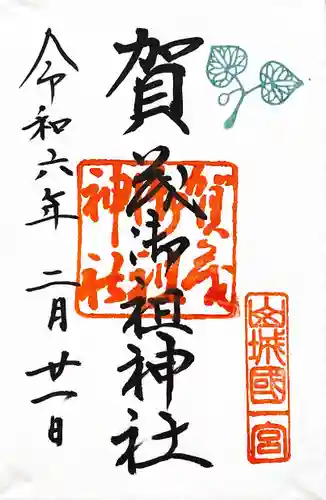 賀茂御祖神社
令和六年 二月廿一日
賀茂
御祖
神社
山城國一宮